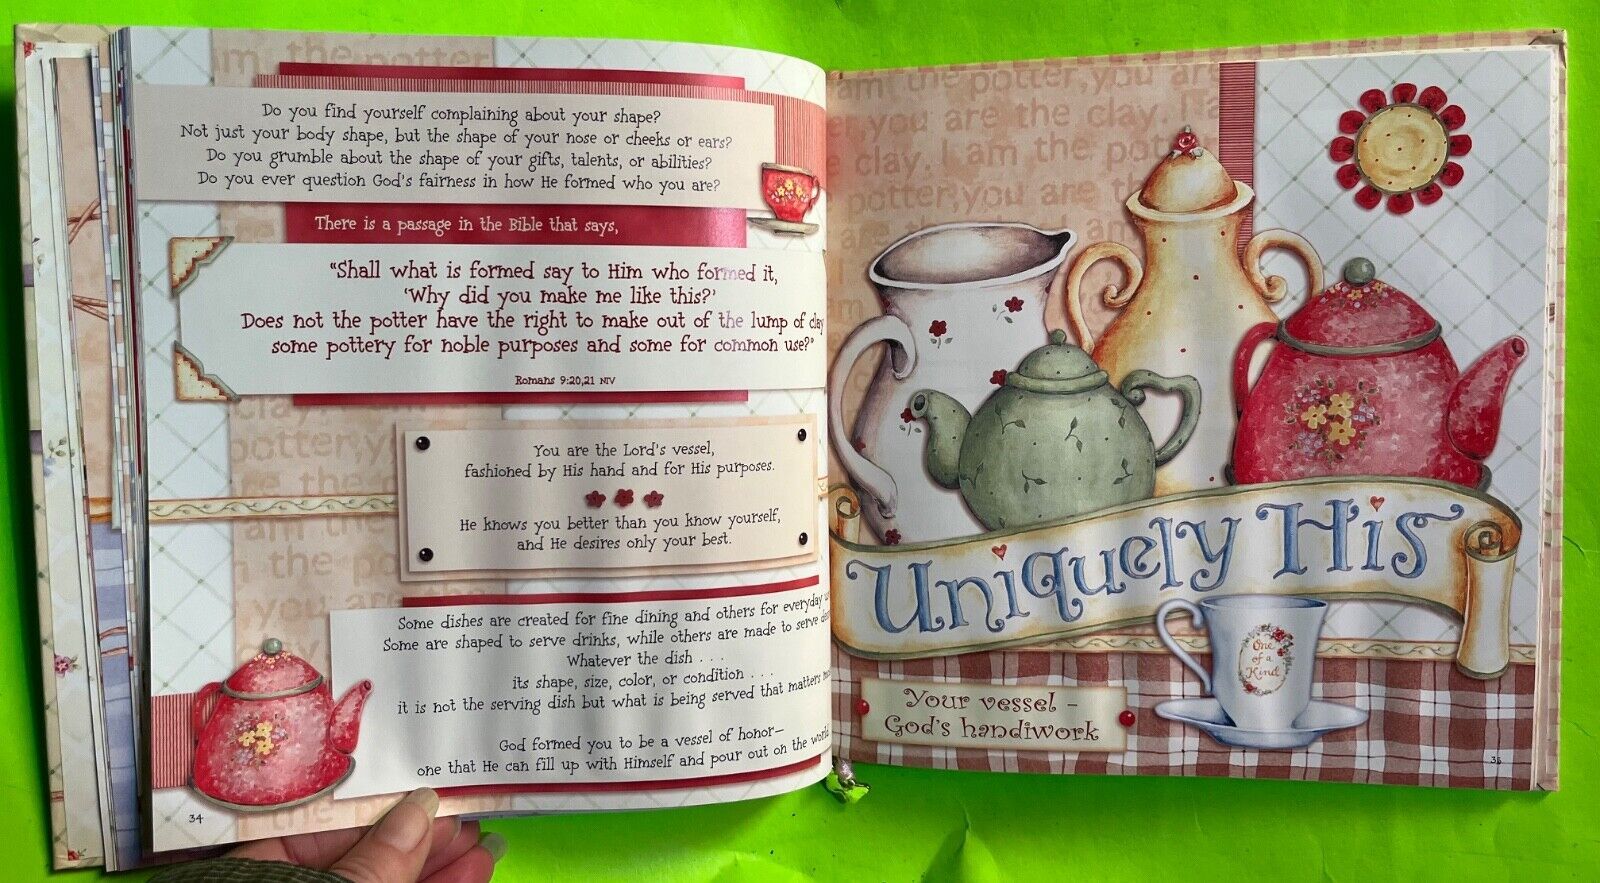 Do you find yourself complaining about your shape?
Not just your body shape, but the shape of your nose or cheeks or ears?
Do you grumble about the shape of your gifts, talents, or abilities?
Do you ever question God's fairness in how He formed who you are?
There is a passage in the Bible that says,
"Shall what is formed say to Him who formed it,
'Why did you make me like this?'
Does not the potter have the right to make out of the lump of clay
some pottery for noble purposes and some for common use?"
Romans 9:20,21 NIV
You are the Lord's vessel,
fashioned by His hand and for His purposes.
He knows you better than you know yourself,
and He desires only your best.
Some dishes are created for fine dining and others for everyday
Some are shaped to serve drinks, while others are made to serve
Whatever the dish . . .
its shape, size, color, or condition . . .
it is not the serving dish but what is being served that matters
God formed you to be a vessel of honor—
one that He can fill up with Himself and pour out on the world
34
am the potter, you are
you are the clay. I
clay. I am the
potter, you are
Uniquely His
One
of a
Kind
Your vessel –
God's handiwork
35